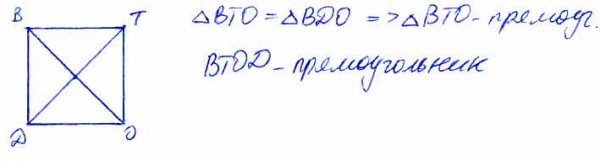 B T
Д O
△BTO = △BDO => △BTO - прямоуг.
BTOD - прямоугольник